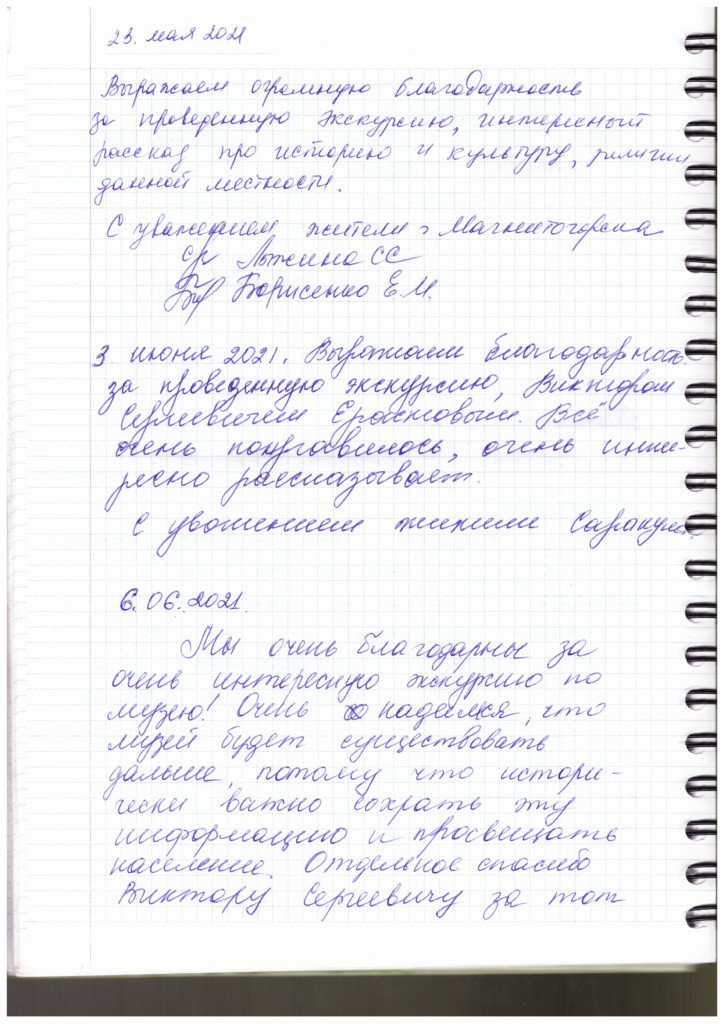 23. мая 2021
Выражаем огромную благодарность
за проведенную экскурсию, интересный
рассказ про историю и культуру, религии
данной местности.
С уважением жители г Магнитогорска
Лыжина СС
Борисенко Е.М.
3 июня 2021. Выражаем благодарность
за проведенную экскурсию, Виктором
Сергеевичем Ерастовым. Всё
очень понравилось, очень инте-
ресно рассказывает.
С уважением жители
6.06.2021.
Мы очень благодарны за
очень интересную экскурсию по
музею! Очень надеемся, что
музей будет существовать
дальше, потому что истори-
чески важно сохрать эту
информацию и просвещать
население. Отдельное спасибо
Виктору Сергеевичу за тот